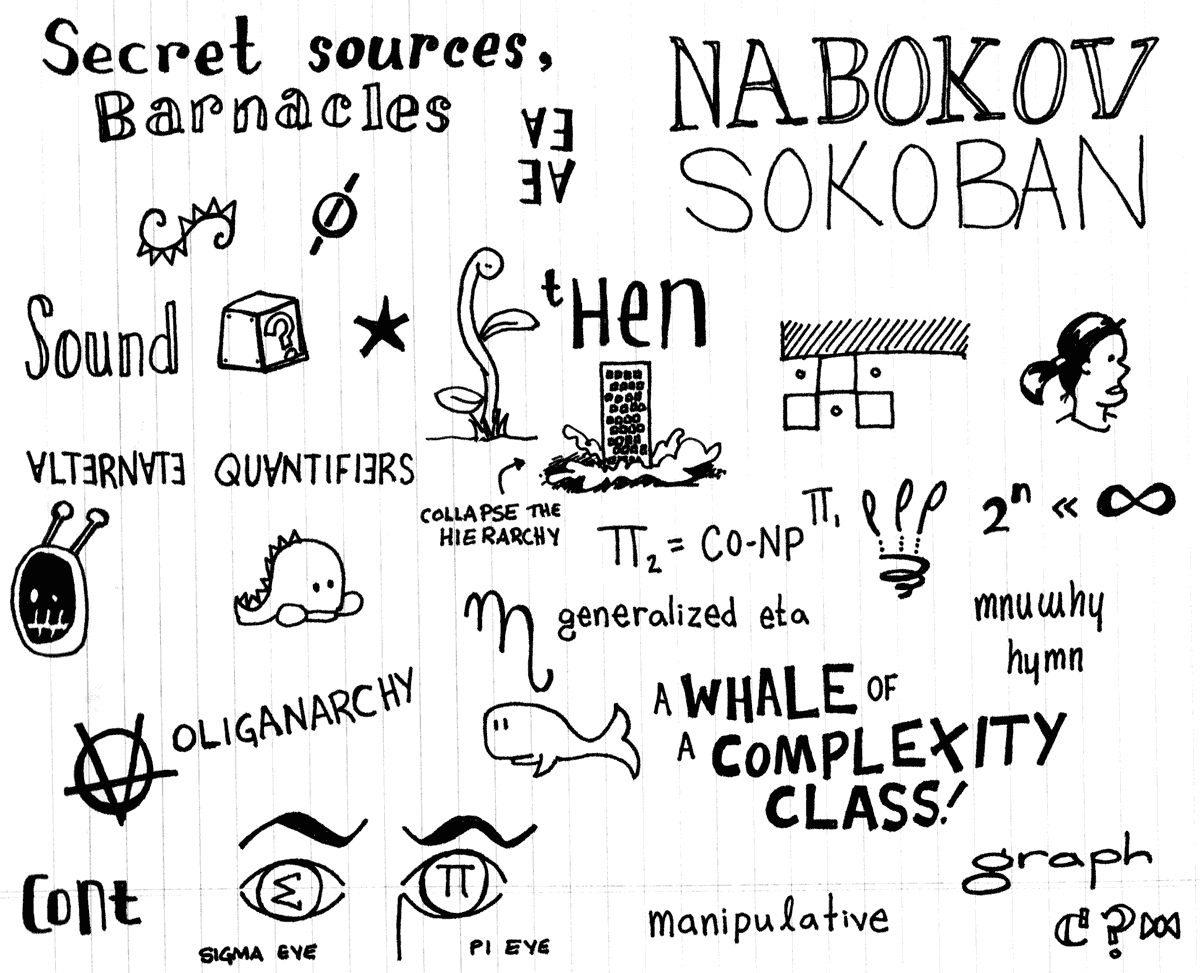 Secret sources,
Barnacles
∀Ǝ
EA
ƎA
Ǝ∀
NABOKOV
SOKOBAN
Sound
?
tHen
∀LTƎRN∀TƎ QU∀NTIFIƎRS
COLLAPSE THE
HIERARCHY
Π₂ = CO-NP^Π₁
2ⁿ << ∞
η generalized eta
mnuwhy
hymn
OLIGANARCHY
A WHALE OF
A COMPLEXITY
CLASS!
Σ Π
SIGMA EYE PI EYE
Cont
graph
manipulative